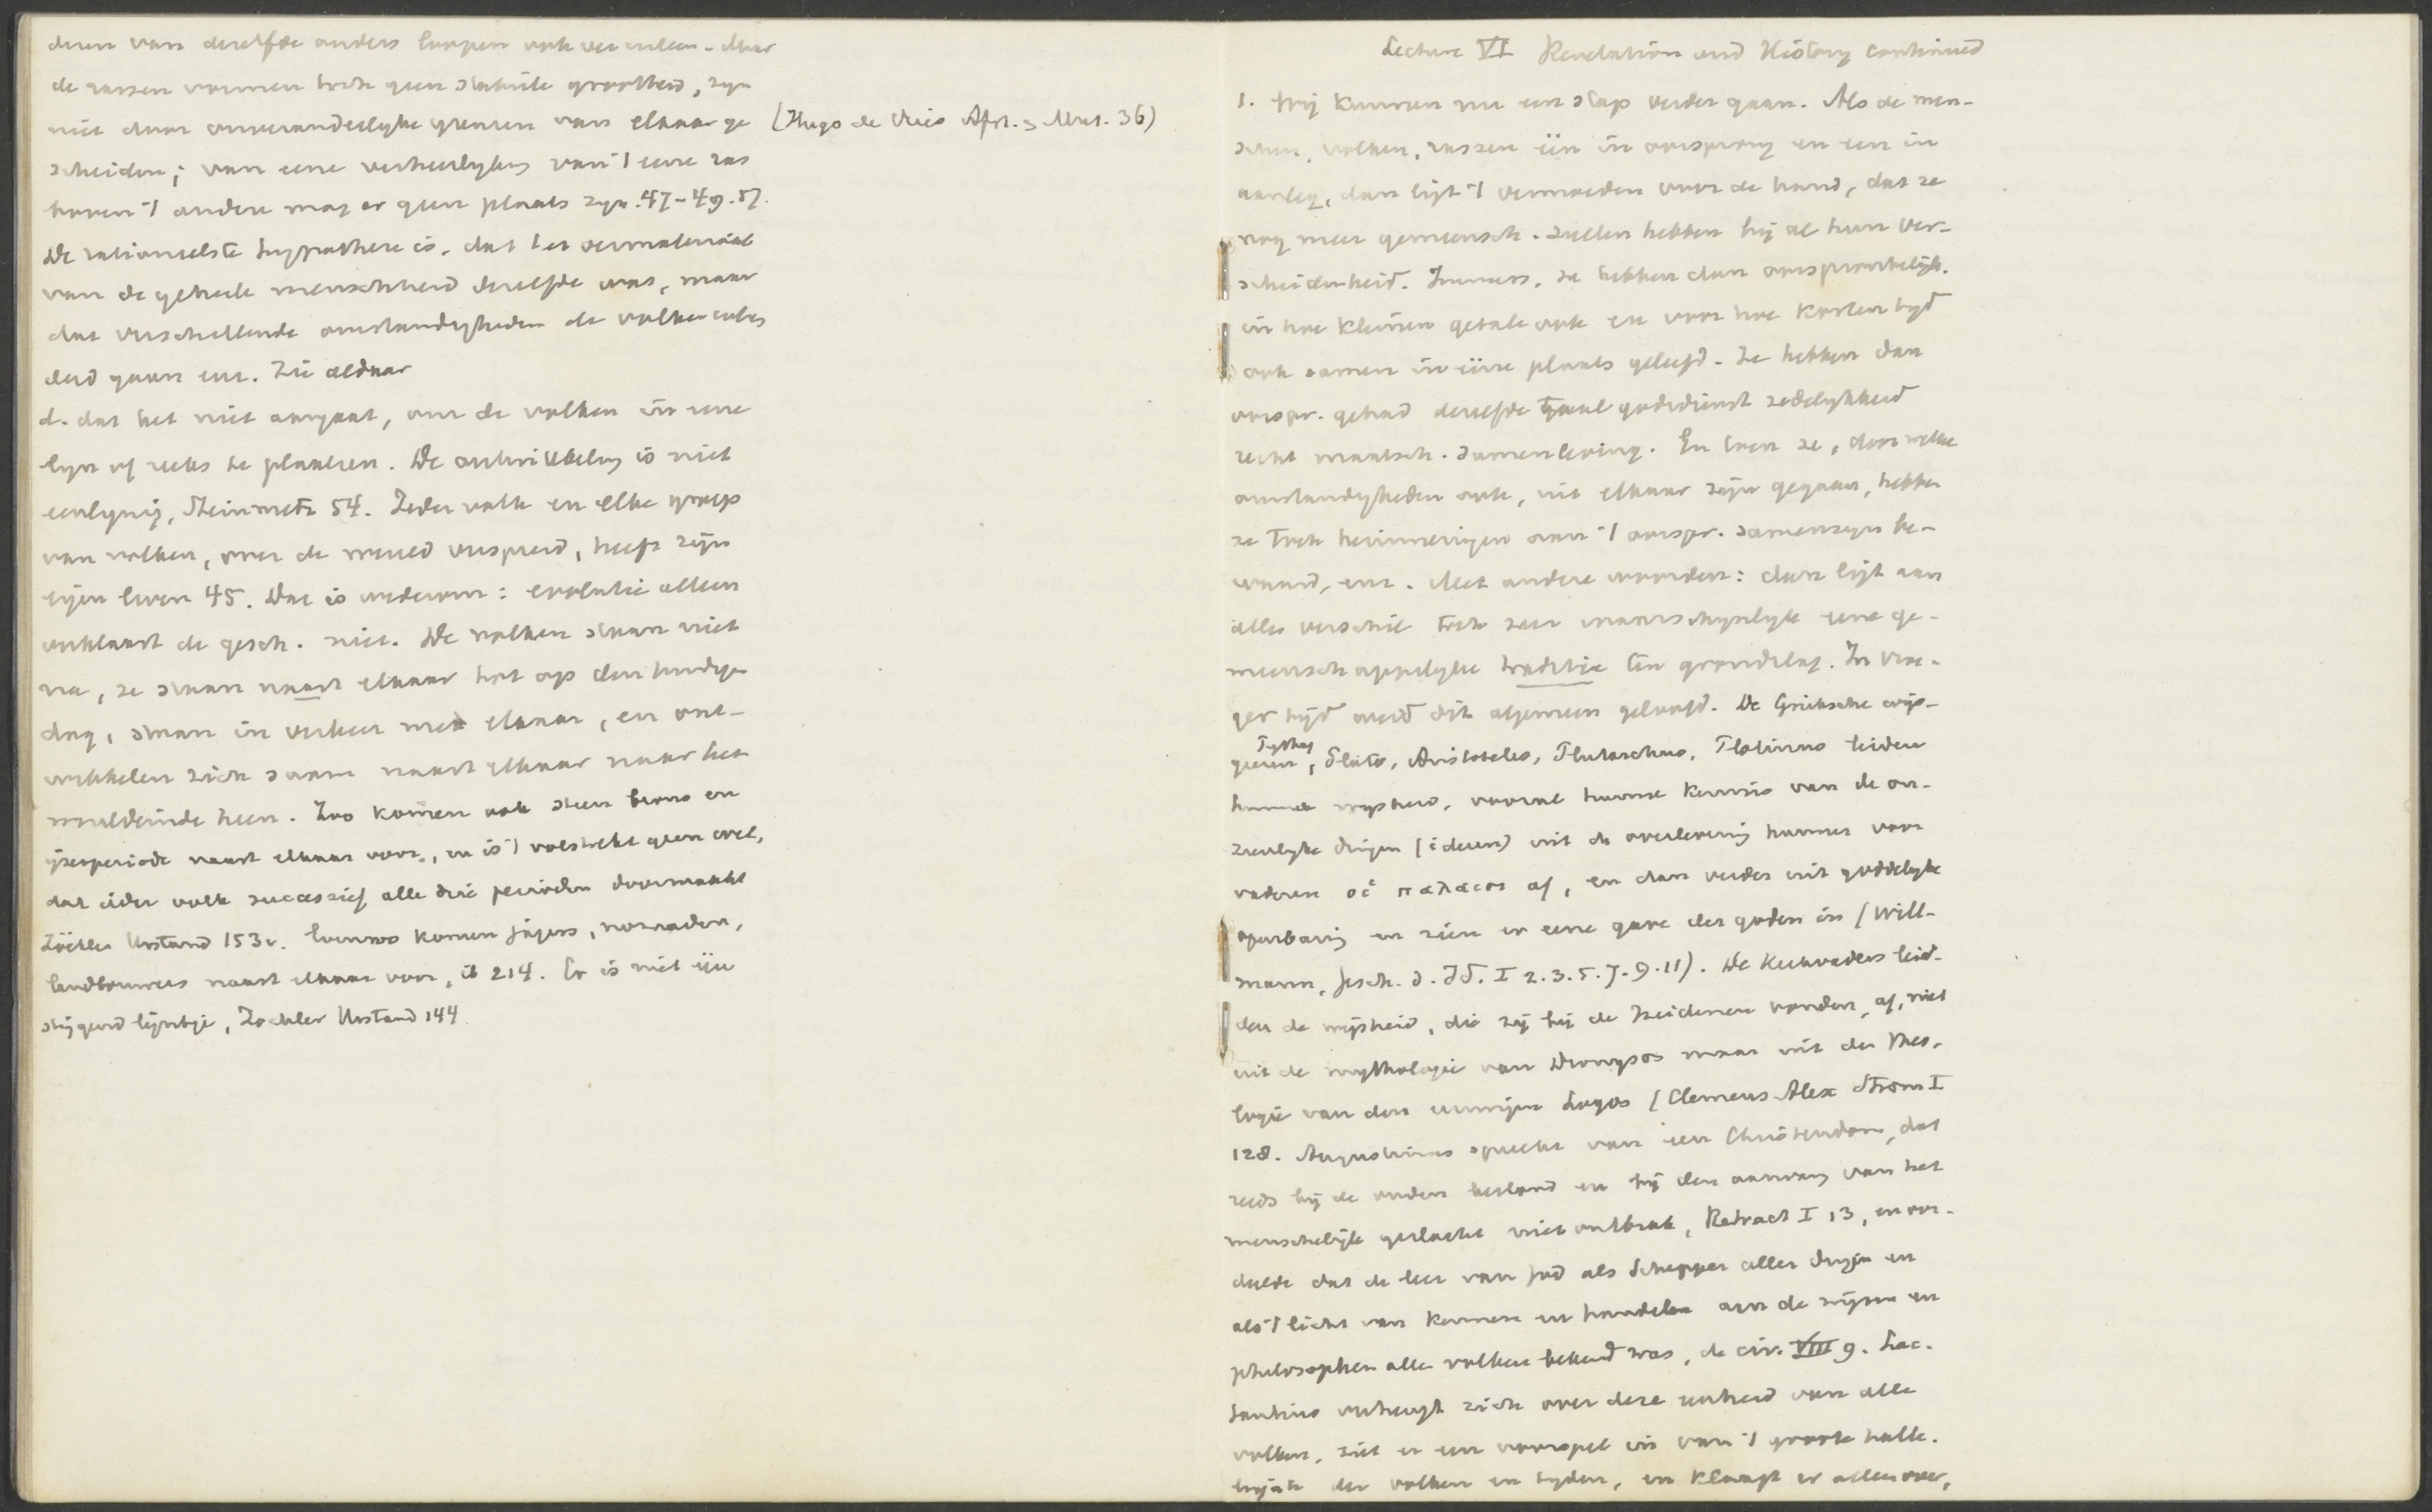 de rassen vormen toch geen stabiele grootheid, zijn
niet door onveranderlyke grenzen van elkaar ge
(Hugo de Vries Afst. & Mut. 36)
scheiden; van eene verheerlyking van 't eene ras
boven 't andere mag er geen plaats zyn. 47-49. 57.
De rationeelste hypothese is, dat het oermateriaal
van de geheele menschheid dezelfde was, maar
dat verschillende omstandigheden de volken
deed gaan enz. Zie aldaar
d. dat het niet aangaat, om de volken in eene
lyn of reeks te plaatsen. De ontwikkeling is niet
eenlynig, Steinmetz 54. Ieder volk en elke groep
van volken, over de wereld verspreid, heeft zijn
eigen leven 45. Dat is wederom: evolutie alleen
verklaart de gesch. niet. De volken staan niet
na, ze staan naast elkaar tot op den huidigen
dag, staan in verkeer met elkaar, en ont-
wikkelen zich saam naast elkaar naar het
wereldeinde heen. Zoo komen ook steen brons en
ijzerperiode naast elkaar voor, en is 't volstrekt geen wet,
dat ieder volk successief alle drie perioden doormaakt
Zöckler Urstand 153v. Evenzoo komen jagers, nomaden,
landbouwers naast elkaar voor, ib 214. Er is niet één
stijgend lijntje, Zöckler Urstand 144
Lecture VI Revelation and History continued
1. Wij kunnen nu een stap verder gaan. Als de men-
schen, volken, rassen één in oorsprong en een in
aanleg, dan ligt 't vermoeden voor de hand, dat ze
nog meer gemeensch. zullen hebben bij al hun ver-
scheidenheid. Immers, ze hebben dan oorspronkelijk,
in hoe kleinen getale ook en voor hoe korten tyd
ook samen in ééne plaats geleefd. Ze hebben dan
oorspr. gehad dezelfde taal godsdienst zedelykheid
recht maatsch. samenleving. En toen ze, door welke
omstandigheden ook, uit elkaar zijn gegaan, hebben
ze toch herinneringen aan 't oorspr. samenzyn be-
waard, enz. Met andere woorden: dan ligt aan
alles verschil toch zeer waarschynlyk eene ge-
meenschappelyke traditie ten grondslag. In vroe-
ger tijd werd dit algemeen geloofd. De Grieksche wijs-
Pythag
geeren, Plato, Aristoteles, Plutarchus, Plotinus leiden
hunne wysheid, vooral hunne kennis van de on-
zienlyke dingen (ideeen) uit de overlevering hunner voor
vaderen οἱ παλαιοι af, en dan verder uit goddelyke
openbaring en zien er eene gave der goden in (Will-
mann, Gesch. d. Id. I 2.3.5.7.9.11). De Kerkvaders leid-
den de wijsheid, die zij bij de Heidenen vonden, af, niet
uit de mythologie van Dionysos maar uit de Theo-
logie van den eeuwigen Logos (Clemens Alex Strom I
128. Augustinus spreekt van een Christendom, dat
reeds bij de ouden bestond en bij den aanvang van het
menschelijk geslacht niet ontbrak, Retract I 13, en oor-
deelde dat de leer van God als Schepper aller dingen en
als 't licht van kennen en handelen aan de wijzen en
philosophen aller volken bekend was, de civ. VIII 9. Lac-
tantius verheugt zich over deze eenheid van alle
volken, ziet er een voorspel in van 't groote halle-
lujah der volken en tyden, en klaagt er alleen over,